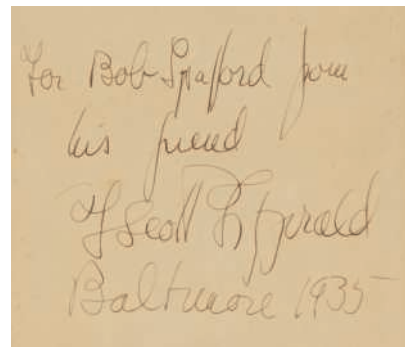 For Bob Spafford from
his friend
F Scott Fitzgerald
Baltimore 1935